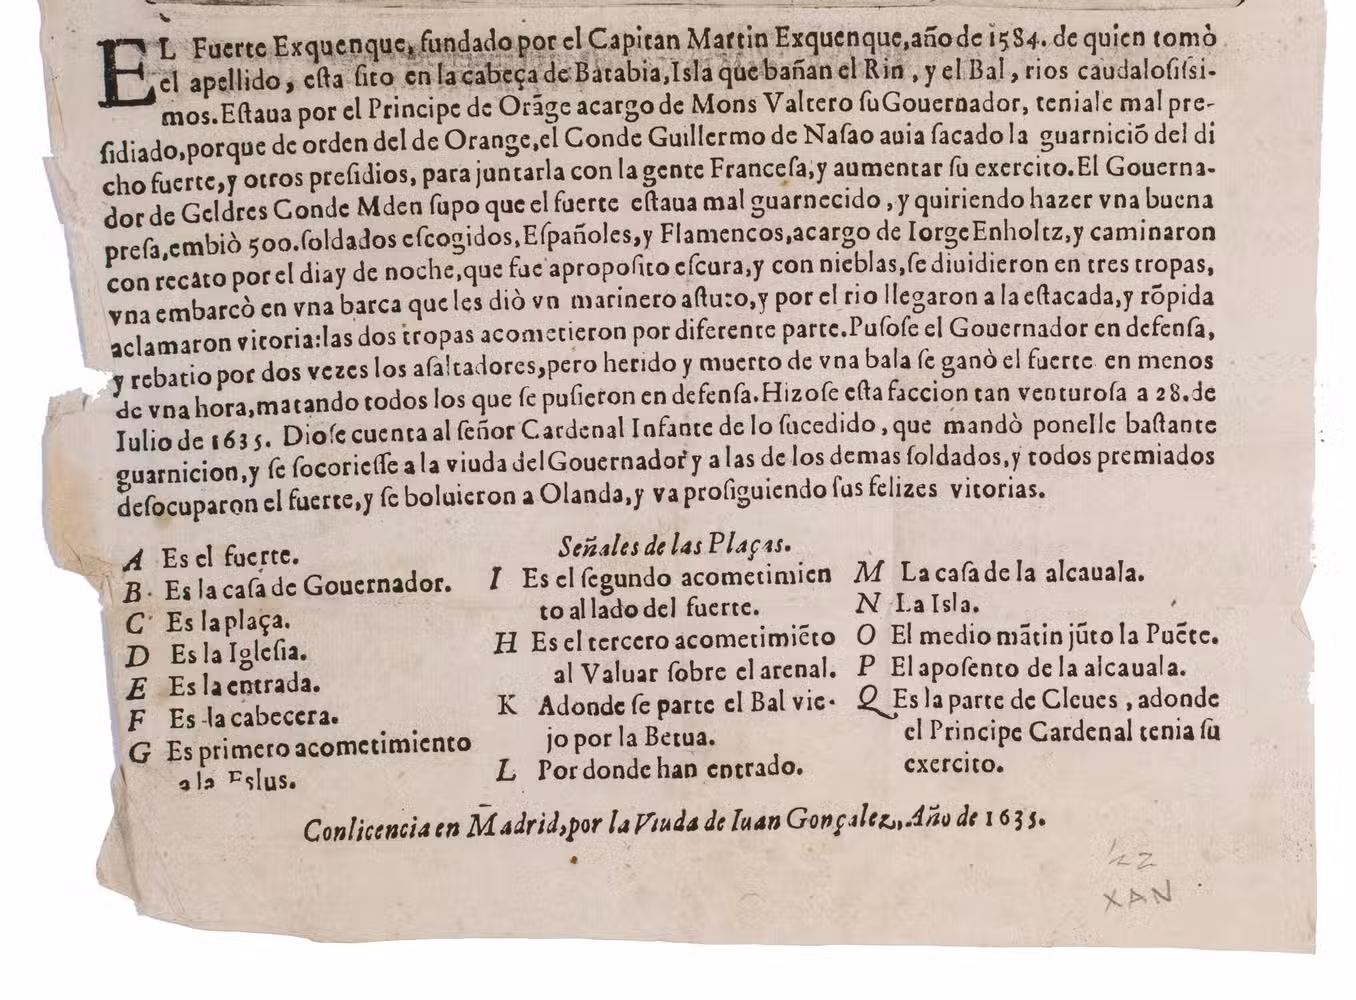 EL Fuerte Exquenque, fundado por el Capitan Martin Exquenque, año de 1584. de quien tomò
el apellido, eſta ſito en la cabeça de Batabia, Isla que bañan el Rin, y el Bal, rios caudaloſiſsi-
mos. Eſtaua por el Principe de Orãge acargo de Mons Valtero ſu Gouernador, teniale mal pre-
ſidiado, porque de orden del de Orange, el Conde Guillermo de Naſao auia ſacado la guarniciõ del di
cho fuerte, y otros preſidios, para juntarla con la gente Franceſa, y aumentar ſu exercito. El Gouerna-
dor de Geldres Conde Mden ſupo que el fuerte eſtaua mal guarnecido, y quiriendo hazer vna buena
preſa, embiò 500. ſoldados eſcogidos, Eſpañoles, y Flamencos, acargo de Iorge Enholtz, y caminaron
con recato por el dia y de noche, que fue apropoſito eſcura, y con nieblas, ſe diuidieron en tres tropas,
vna embarcò en vna barca que les diò vn marinero aſtuto, y por el rio llegaron a la eſtacada, y rõpida
aclamaron vitoria: las dos tropas acometieron por diferente parte. Puſoſe el Gouernador en defenſa,
y rebatio por dos vezes los aſaltadores, pero herido y muerto de vna bala ſe ganò el fuerte en menos
de vna hora, matando todos los que ſe puſieron en defenſa. Hizoſe eſta faccion tan venturoſa a 28. de
Iulio de 1635. Dioſe cuenta al ſeñor Cardenal Infante de lo ſucedido, que mandò ponelle baſtante
guarnicion, y ſe ſocorieſſe a la viuda del Gouernador y a las de los demas ſoldados, y todos premiados
deſocuparon el fuerte, y ſe boluieron a Olanda, y va proſiguiendo ſus felizes vitorias.
Señales de las Plaças.
A Es el fuerte.
B. Es la caſa de Gouernador.
C Es la plaça.
D Es la Igleſia.
E Es la entrada.
F Es la cabecera.
G Es primero acometimiento
a la Eslus.
I Es el ſegundo acometimien
to al lado del fuerte.
H Es el tercero acometimiẽto
al Valuar ſobre el arenal.
K Adonde ſe parte el Bal vie-
jo por la Betua.
L Por donde han entrado.
M La caſa de la alcauala.
N La Isla.
O El medio mãtin jũto la Puẽte.
P El apoſento de la alcauala.
Q Es la parte de Cleues, adonde
el Principe Cardenal tenia ſu
exercito.
Con licencia en Madrid, por la Viuda de Iuan Gonçalez, Año de 1635.
XAN